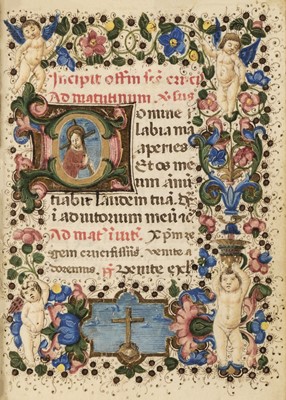 Incipit offiu sce crucis
Ad matutinum. Xpus
Domine
labia ma
aperies
Et os me
um anu
tiabit laudem tuā.
i adiutorium meū
Ad mat. iuit. Xpm re
gem crucifixū. uenite a
doremus. ps Venite